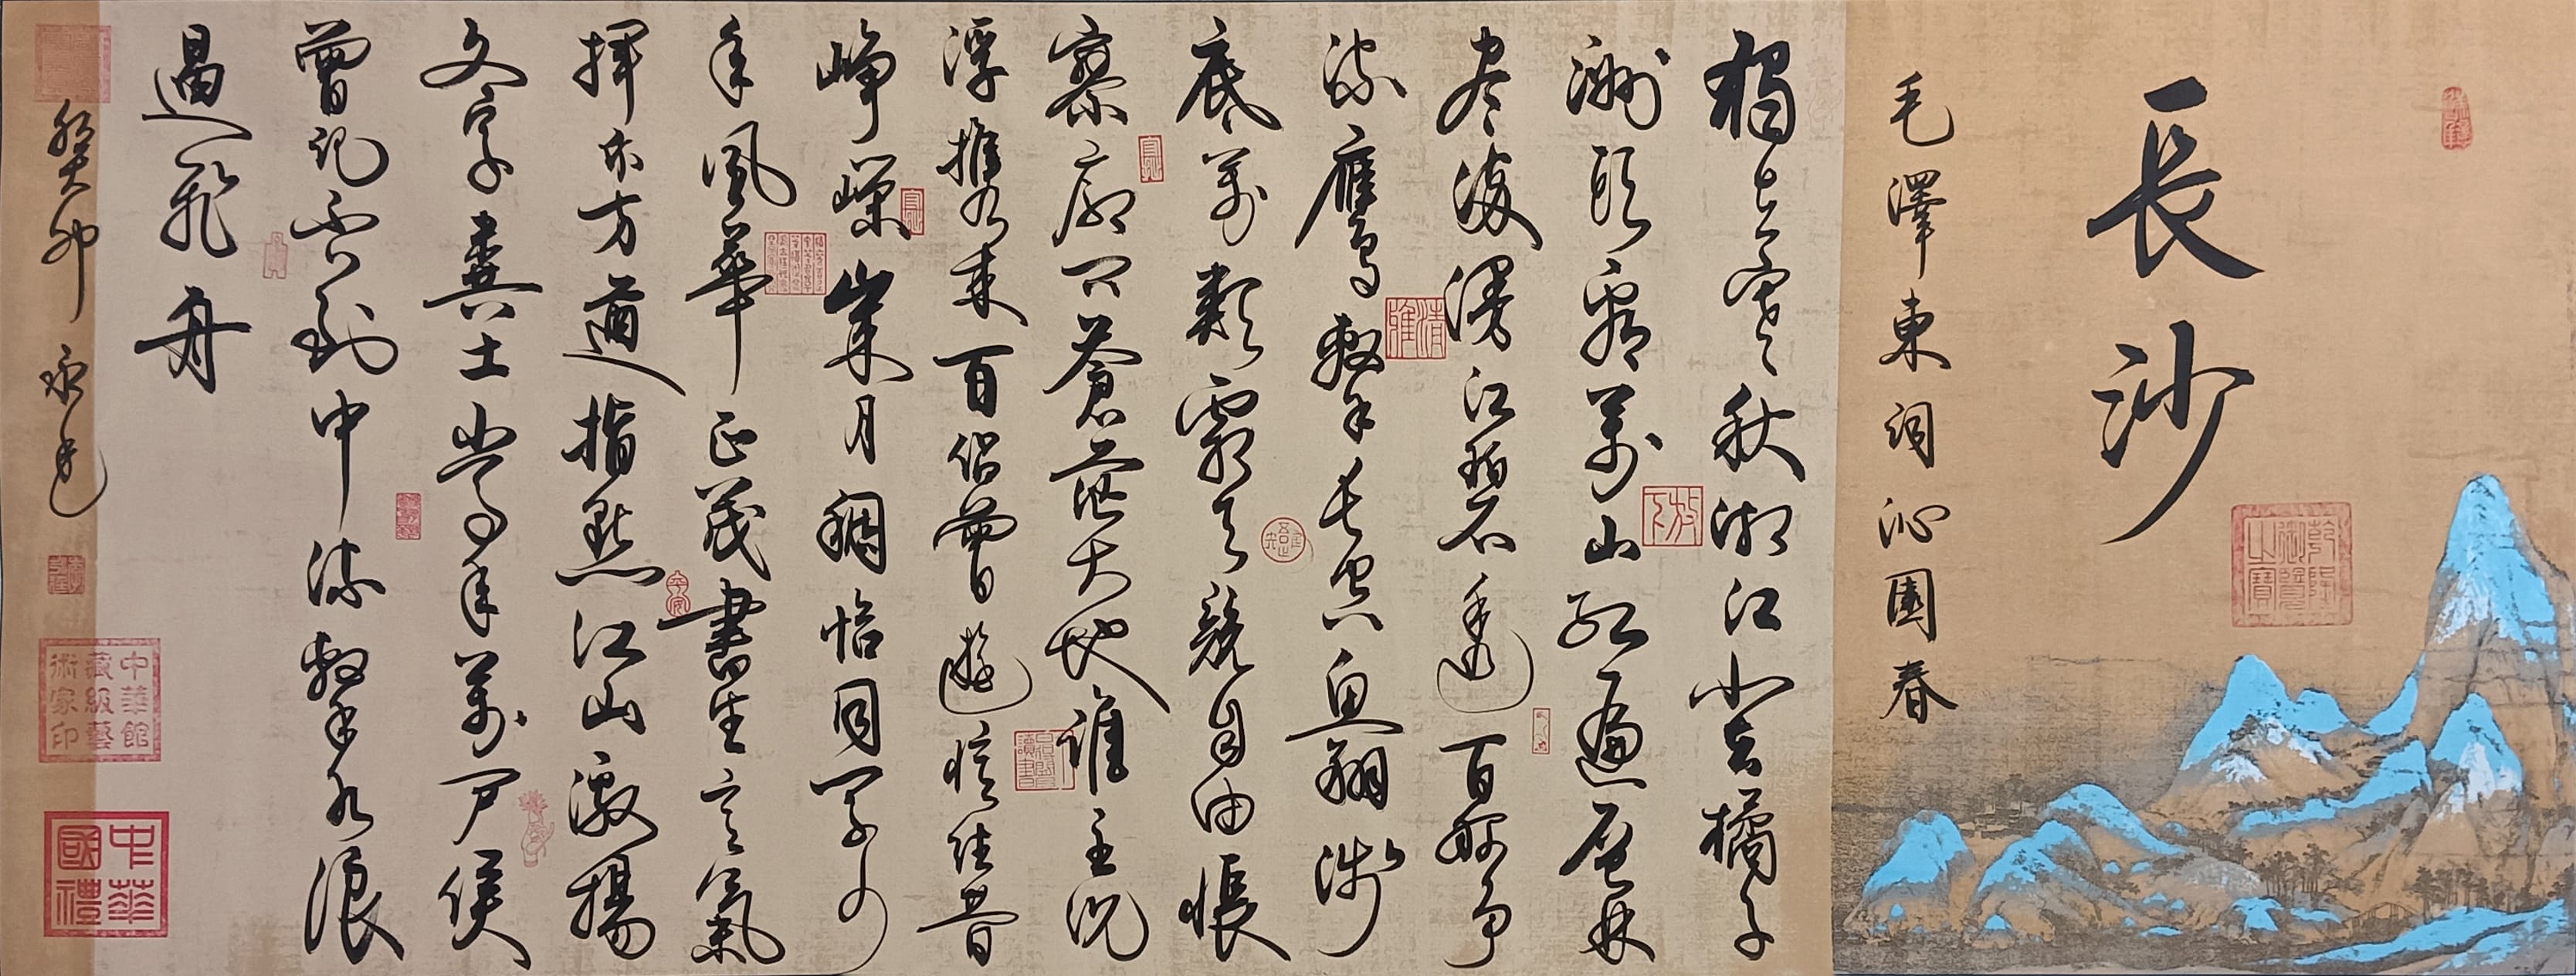 長沙
毛澤東詞沁園春
獨立寒秋湘江北去橘子
洲頭看萬山紅遍層林
尽染漫江碧透百舸爭
流鷹擊長空魚翔淺
底萬類霜天競自由悵
寥廓問蒼茫大地誰主沉
浮攜來百侶曾遊憶往昔
崢嶸歲月稠恰同學少
年風華正茂書生意氣
揮斥方遒指點江山激揚
文字糞土當年萬戶侯
曾記否到中流擊水浪
遏飛舟
癸卯
乾隆御覽之寶
放下
清雅
平安
中華館藏級藝術家印
中華國禮